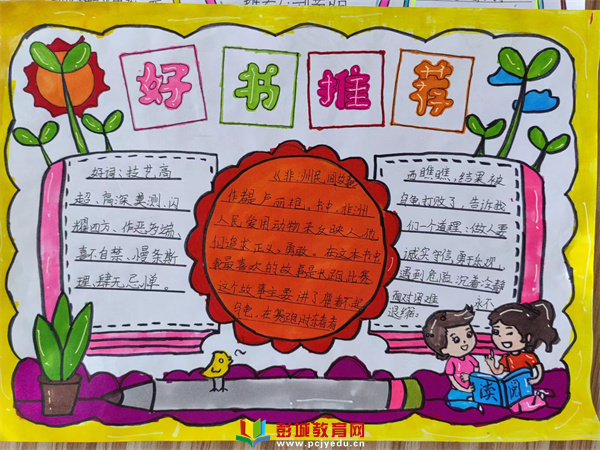 好书推荐
好词：技艺高
超、高深莫测、闪
耀四方、作恶多端、
喜不自禁、慢条斯
理、肆无忌惮。
《非洲民间故事》
作是卢丽艳，书中，非洲
人民爱用动物来反映人他
们追求正义、勇敢。在这本书中
我最喜欢的故事是长跑比赛
这个故事主要讲了瞧不起
乌龟，在赛跑时东看看
西瞧瞧，结果被
乌龟打败了，告诉我
们一个道理：做人要
诚实守信，勇于乐观，
遇到危险沉着冷静
面对困难 永不
退缩。
读阅
彭城教育网
www.pcjyedu.cn